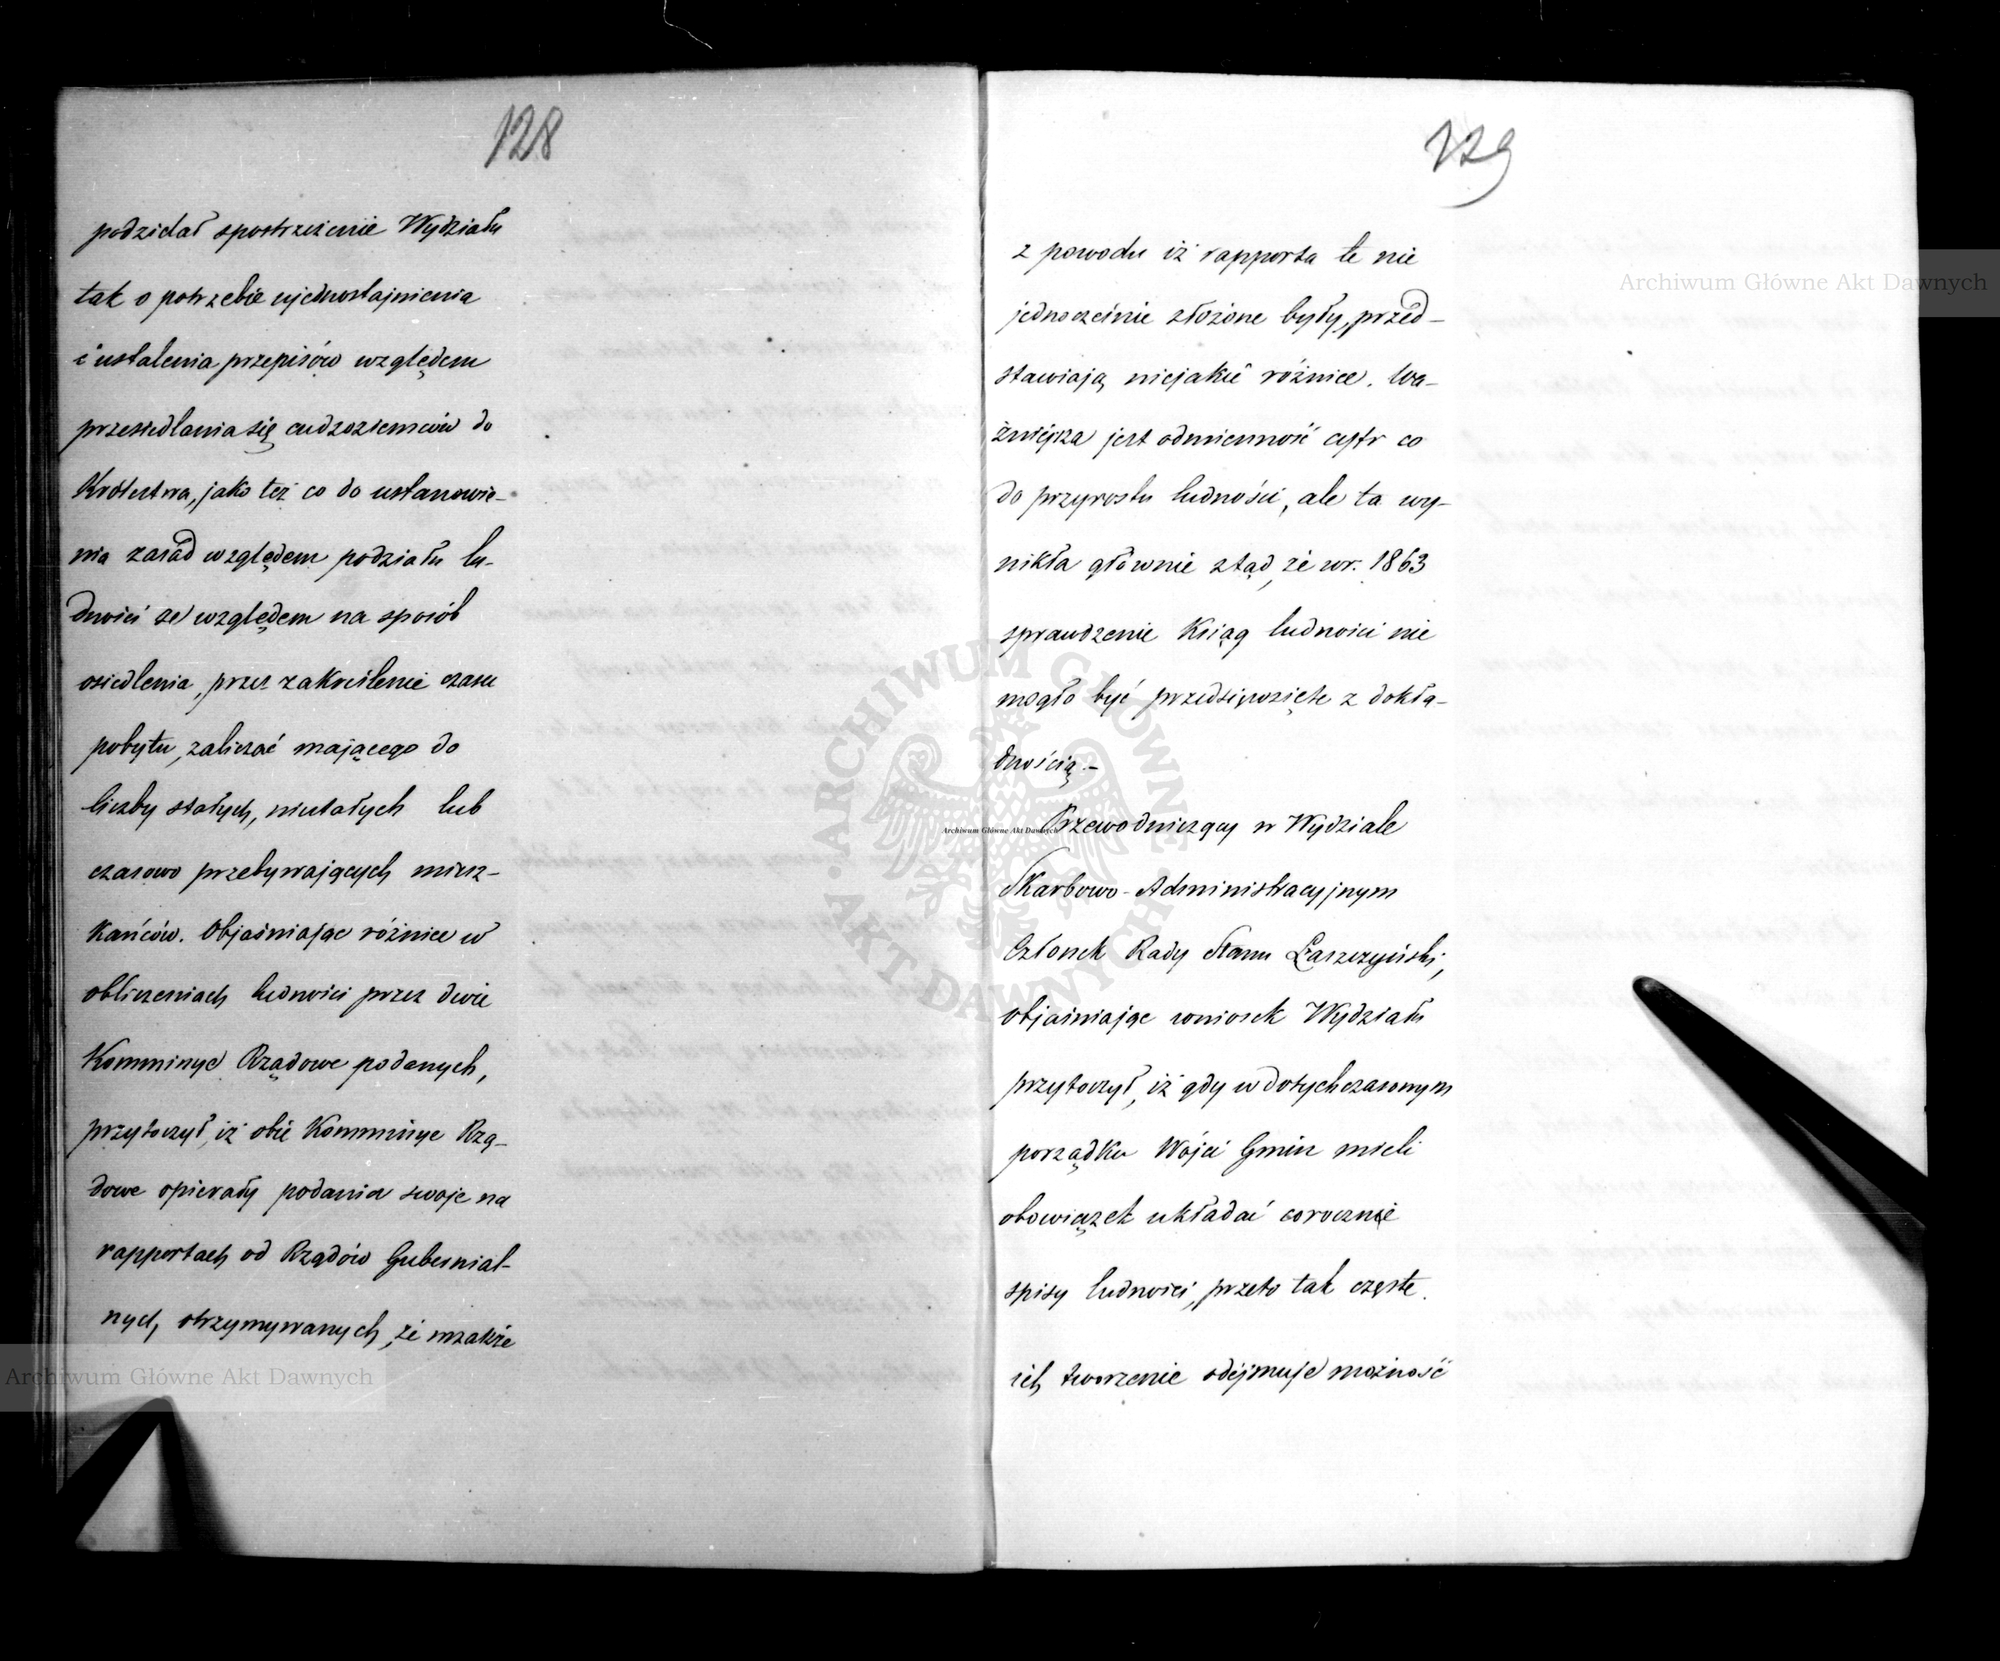 128
podzielał spostrzeżenie Wydziału
tak o potrzebie ujednostajnienia
i ustalenia przepisów względem
przesiedlania się cudzoziemców do
Królestwa, jako też co do ustanowie-
nia zasad względem podziału lu-
dności ze względem na sposób
osiedlenia, przez zakreślenie czasu
pobytu, zaliczać mającego do
liczby stałych, niestałych lub
czasowo przebywających miesz-
kańców. Objaśniając różnice w
obliczeniach ludności przez dwie
Kommissye Rządowe podanych,
przytoczył, iż obie Kommissye Rzą-
dowe opierały podania swoje na
rapportach od Rządów Gubernial-
nych otrzymywanych, że wszakże
129
z powodu iż rapporta te nie
jednocześnie złożone były, przed-
stawiają niejakie różnice. Wa-
żniejsza jest odmienność cyfr co
do przyrostu ludności, ale ta wy-
nikła głównie ztąd, że w r. 1863
sprawdzenie Ksiąg ludności nie
mogło być przedsięwzięte z dokła-
dnością.-
Przewodniczący w Wydziale
Skarbowo-Administracyjnym
Członek Rady Stanu Łaszczyński,
objaśniając wniosek Wydziału
przytoczył, iż gdy w dotychczasowym
porządku Wójci Gmin mieli
obowiązek układać corocznie
spisy ludności, przeto tak częste
ich tworzenie odejmuje możność
Archiwum Główne Akt Dawnych
Archiwum Główne Akt Dawnych
Archiwum Główne Akt Dawnych
ARCHIWUM GŁÓWNE AKT DAWNYCH